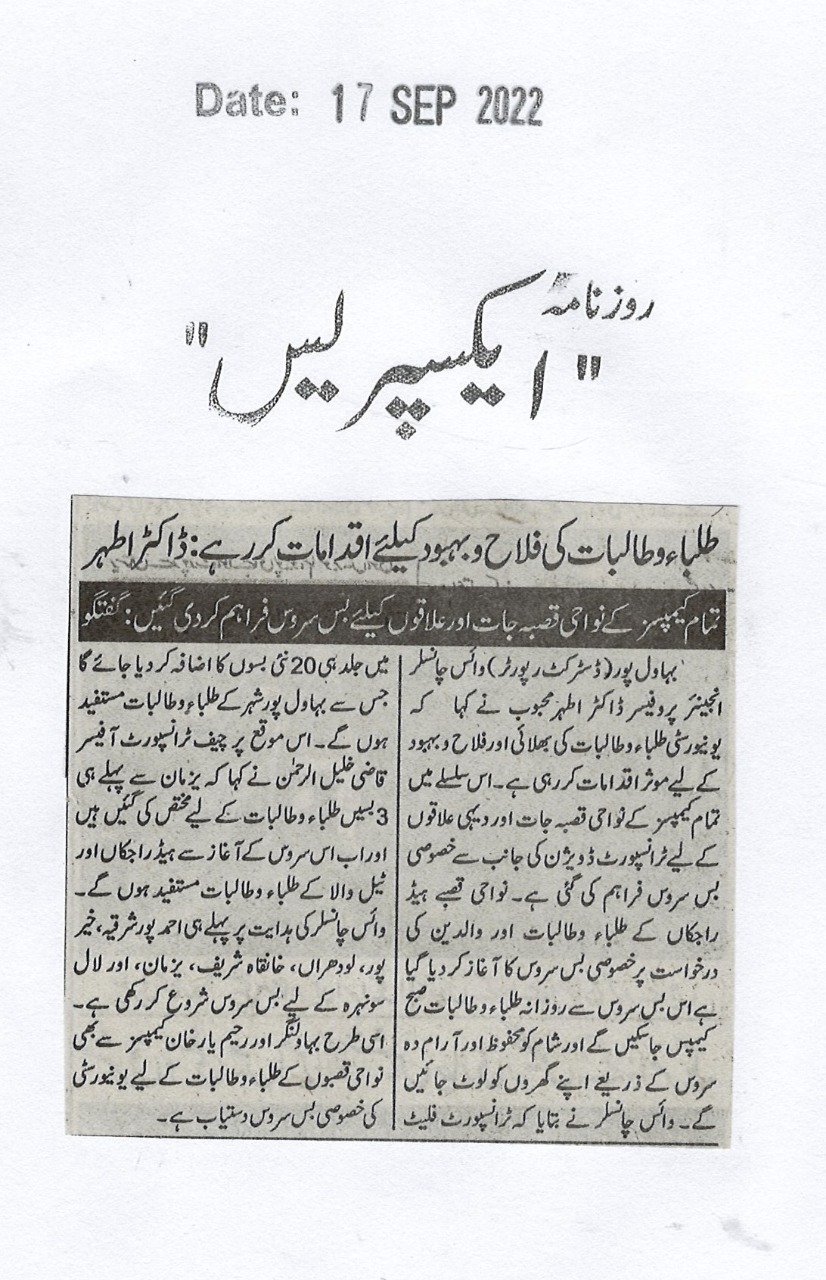 Date: 17 SEP 2022
روزنامہ
"ایکسپریس"
طلباء و طالبات کی فلاح و بہبود کیلئے اقدامات کر رہے: ڈاکٹر اطہر
تمام کیمپسز کے نواحی قصبہ جات اور علاقوں کیلئے بس سروس فراہم کر دی گئیں: گفتگو
بہاول پور (ڈسٹرکٹ رپورٹر) وائس چانسلر
انجینئر پروفیسر ڈاکٹر اطہر محبوب نے کہا کہ
یونیورسٹی طلباء و طالبات کی بھلائی اور فلاح و بہبود
کے لیے موثر اقدامات کر رہی ہے۔ اس سلسلے میں
تمام کیمپسز کے نواحی قصبہ جات اور دیہی علاقوں
کے لیے ٹرانسپورٹ ڈویژن کی جانب سے خصوصی
بس سروس فراہم کی گئی ہے۔ نواحی قصبے ہیڈ
راجکاں کے طلباء وطالبات اور والدین کی
درخواست پر خصوصی بس سروس کا آغاز کر دیا گیا
ہے اس بس سروس سے روزانہ طلباء و طالبات صبح
کیمپس جا سکیں گے اور شام کو محفوظ اور آرام دہ
سروس کے ذریعے اپنے گھروں کو لوٹ جائیں
گے۔ وائس چانسلر نے بتایا کہ ٹرانسپورٹ فلیٹ
میں جلد ہی 20 نئی بسوں کا اضافہ کر دیا جائے گا
جس سے بہاول پور شہر کے طلباء و طالبات مستفید
ہوں گے۔ اس موقع پر چیف ٹرانسپورٹ آفیسر
قاضی خلیل الرحمٰن نے کہا کہ یزمان سے پہلے ہی
3 بسیں طلباء و طالبات کے لیے مختص کی گئیں ہیں
اور اب اس سروس کے آغاز سے ہیڈ راجکاں اور
ٹیل والا کے طلباء و طالبات مستفید ہوں گے۔
وائس چانسلر کی ہدایت پر پہلے ہی احمد پور شرقیہ، خیر
پور، لودھراں، خانقاہ شریف، یزمان، اور لال
سونہرہ کے لیے بس سروس شروع کر رکھی ہے۔
اسی طرح بہاولنگر اور رحیم یار خان کیمپسز سے بھی
نواحی قصبوں کے طلباء و طالبات کے لیے یونیورسٹی
کی خصوصی بس سروس دستیاب ہے۔